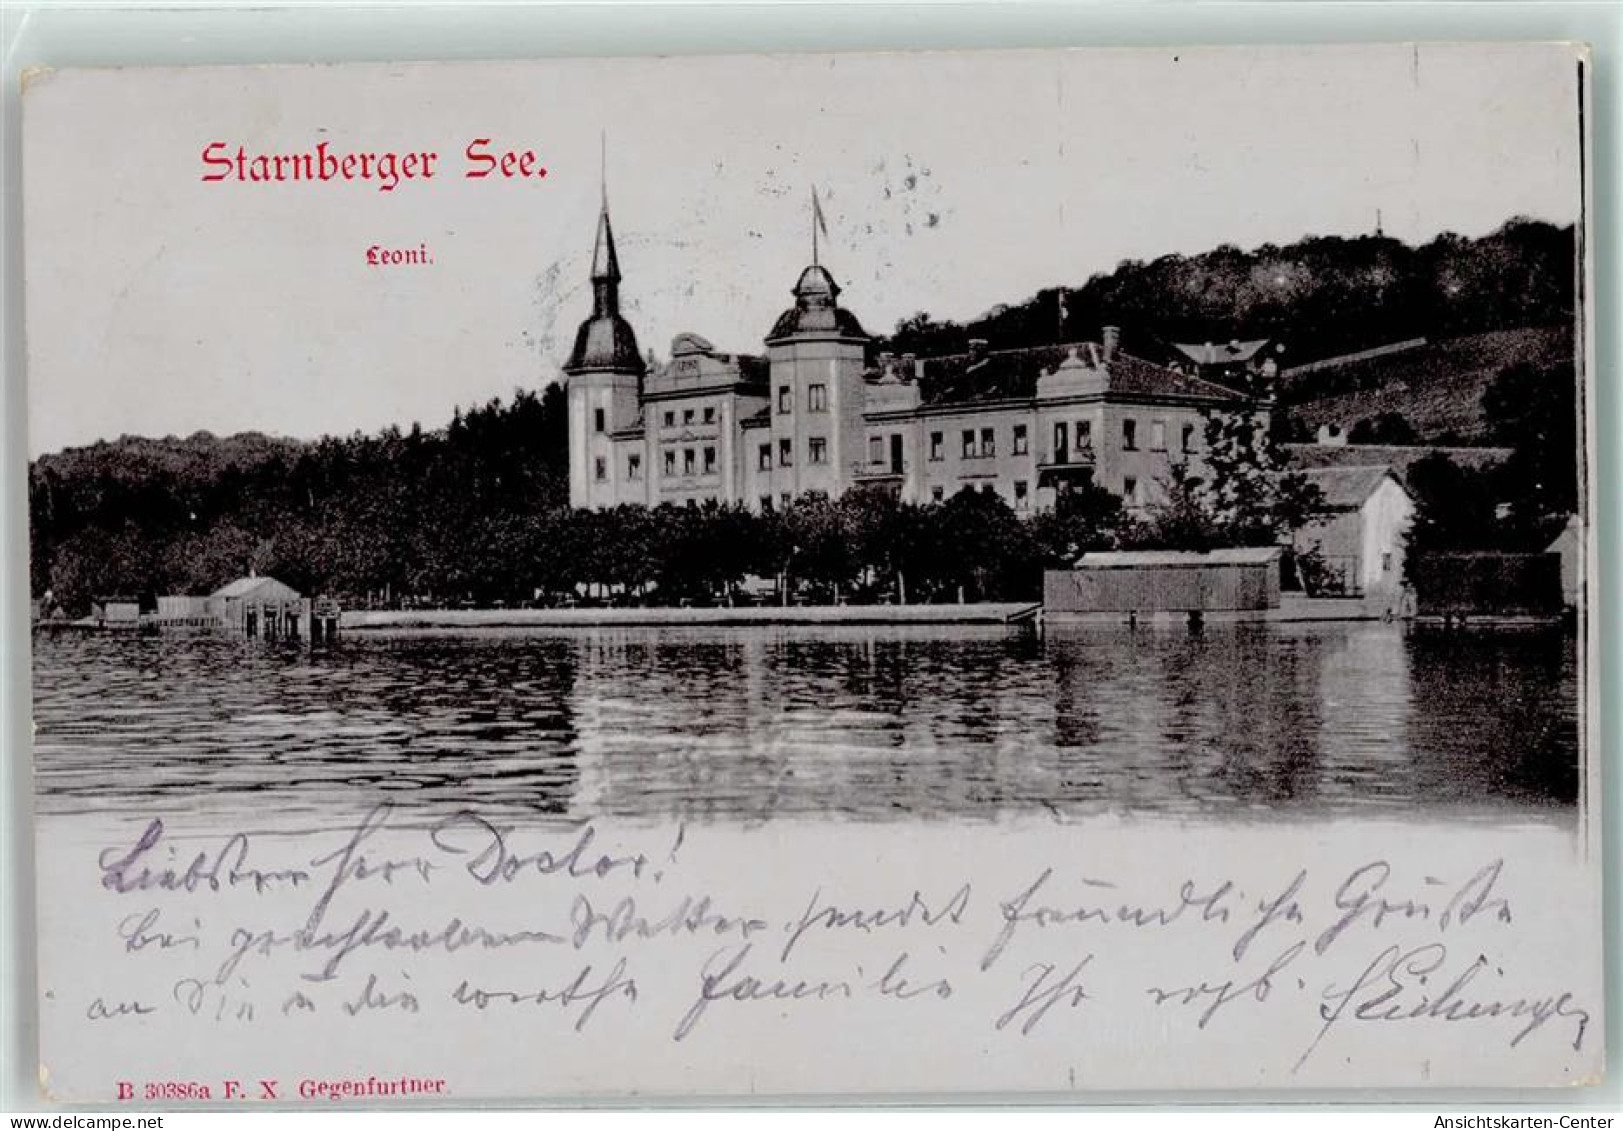 Starnberger See.
Leoni.
Liebster Herr Doctor!
Bei prachtvollem Wetter sendet freundliche Grüße
an Sie u die werthe Familie Ihr ergb.
B 30386a F. X. Gegenfurtner.
Ansichtskarten-Center